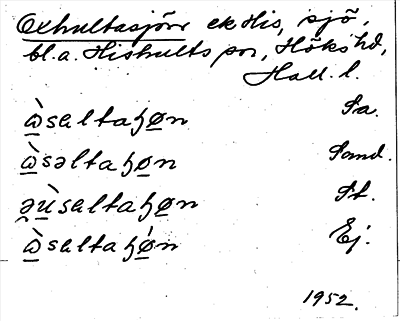 Oxhultasjörr ek His, sjö,
bl.a. Hishults sn, Höks hd,
Hall. l.
ɷ̀saltaɧøn Sa.
ɷ̀səltaɧøn Sand.
əù̱saltaɧøn St.
ɷ̀saltaɧǿn Ej.
1952.